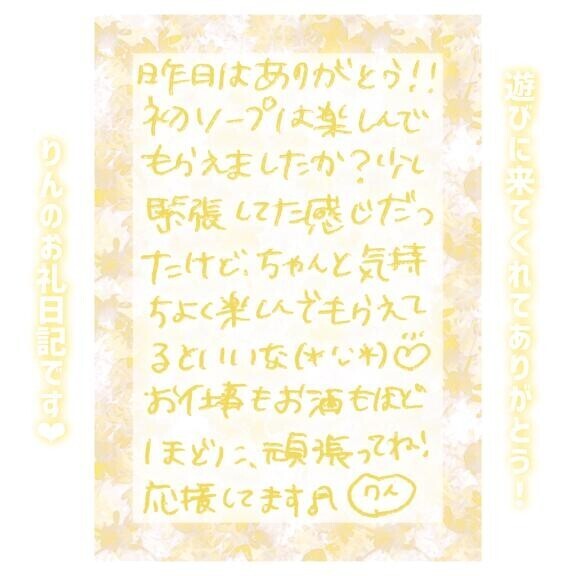 遊びに来てくれてありがとう!
昨日はありがとう!!
初ソープは楽しんで
もらえましたか?少し
緊張してた感じだっ
たけど、ちゃんと気持
ちよく楽しんでもらえて
るといいな(*´ω`*)♡
お仕事もお酒もほど
ほどに、頑張ってね!
応援してます♫ りん
りんのお礼日記です❤